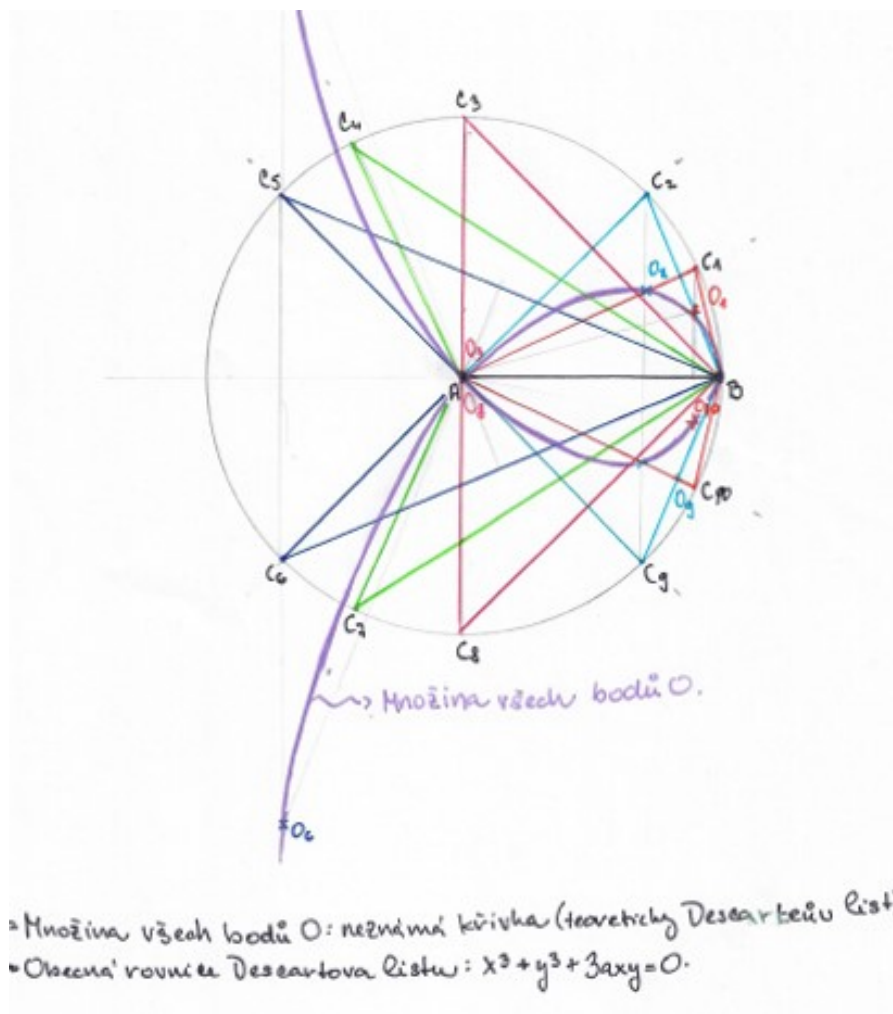 C3
C4
C5
C2
C1
O2
O1
O3
A
B
O8
C10
O9
C6
C9
C7
C8
Množina všech bodů O.
O6
Množina všech bodů O: neznámá křivka (teoreticky Descartův list
Obecná rovnice Descartova listu: x³ + y³ + 3axy = 0.